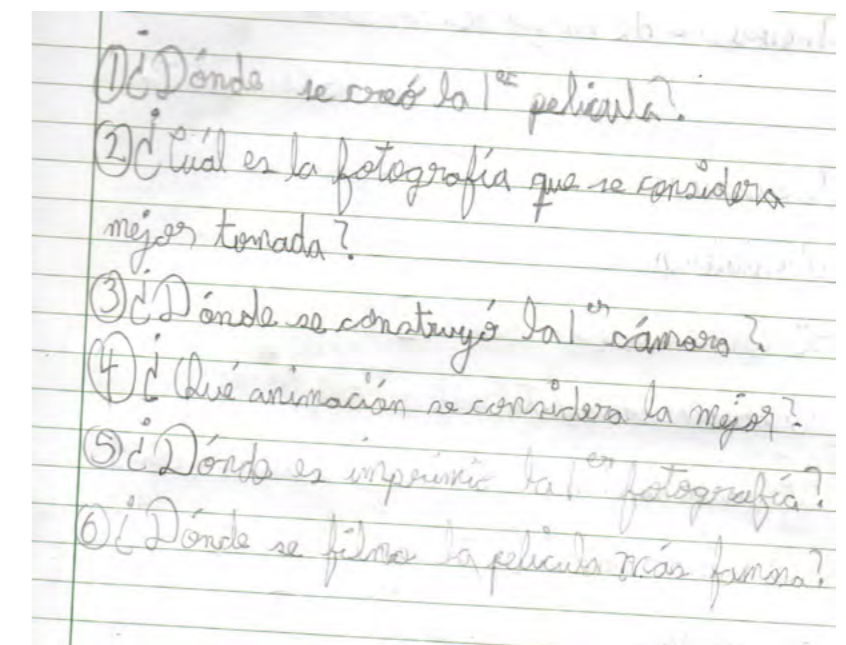 ① ¿Dónde se creó la 1er pelicula?
② ¿Cuál es la fotografía que se considera
mejor tomada?
③ ¿Dónde se construyó la 1er cámara?
④ ¿Qué animación se considera la mejor?
⑤ ¿Dónde es imprimio la 1er fotografía?
⑥ ¿Dónde se filmo la pelicula más famosa?